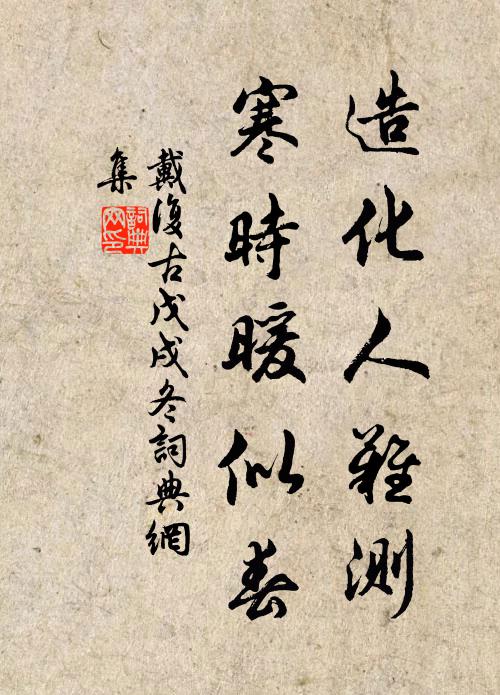 造化人難測
寒時暖似春
戴復古戊戌冬詞典網
集
詞典
网印